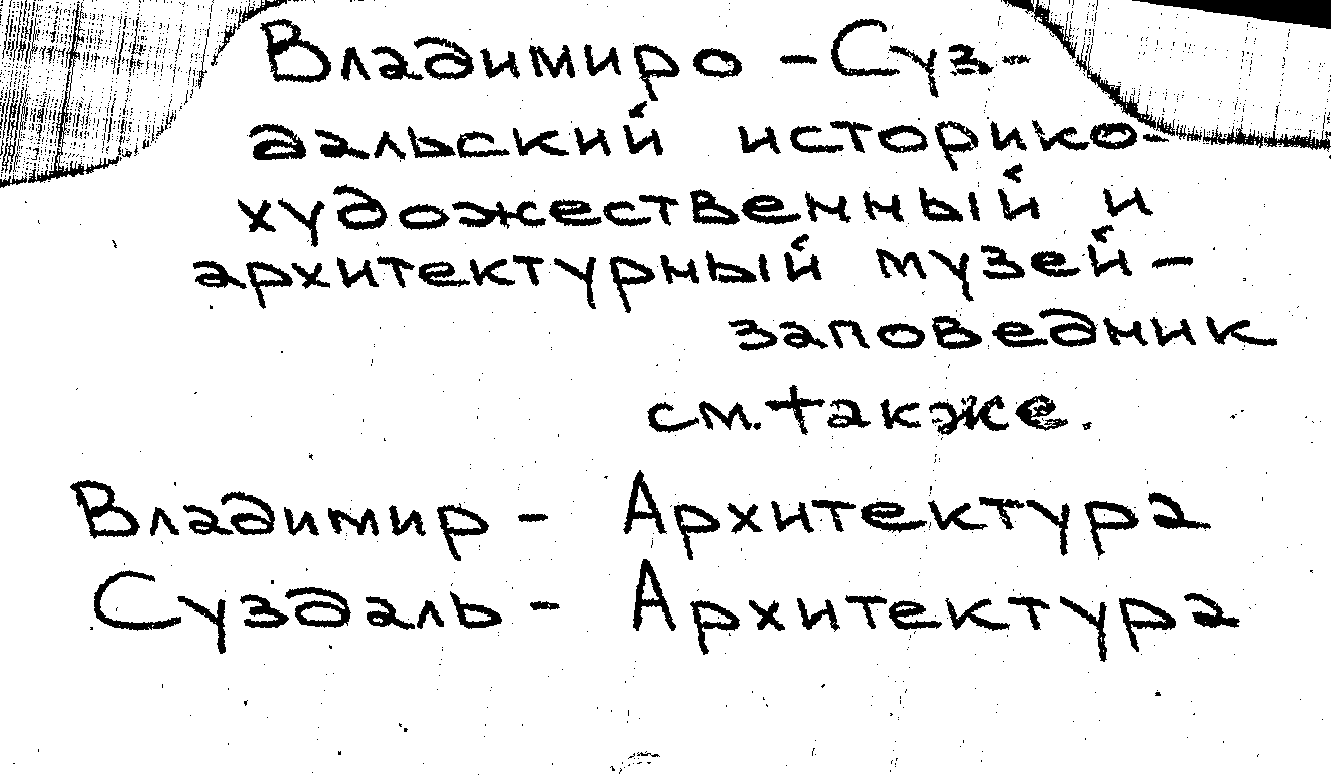 Владимиро-Суз-
дальский историко-
художественный и
архитектурный музей-
заповедник
см. также.
Владимир - Архитектура
Суздаль - Архитектура